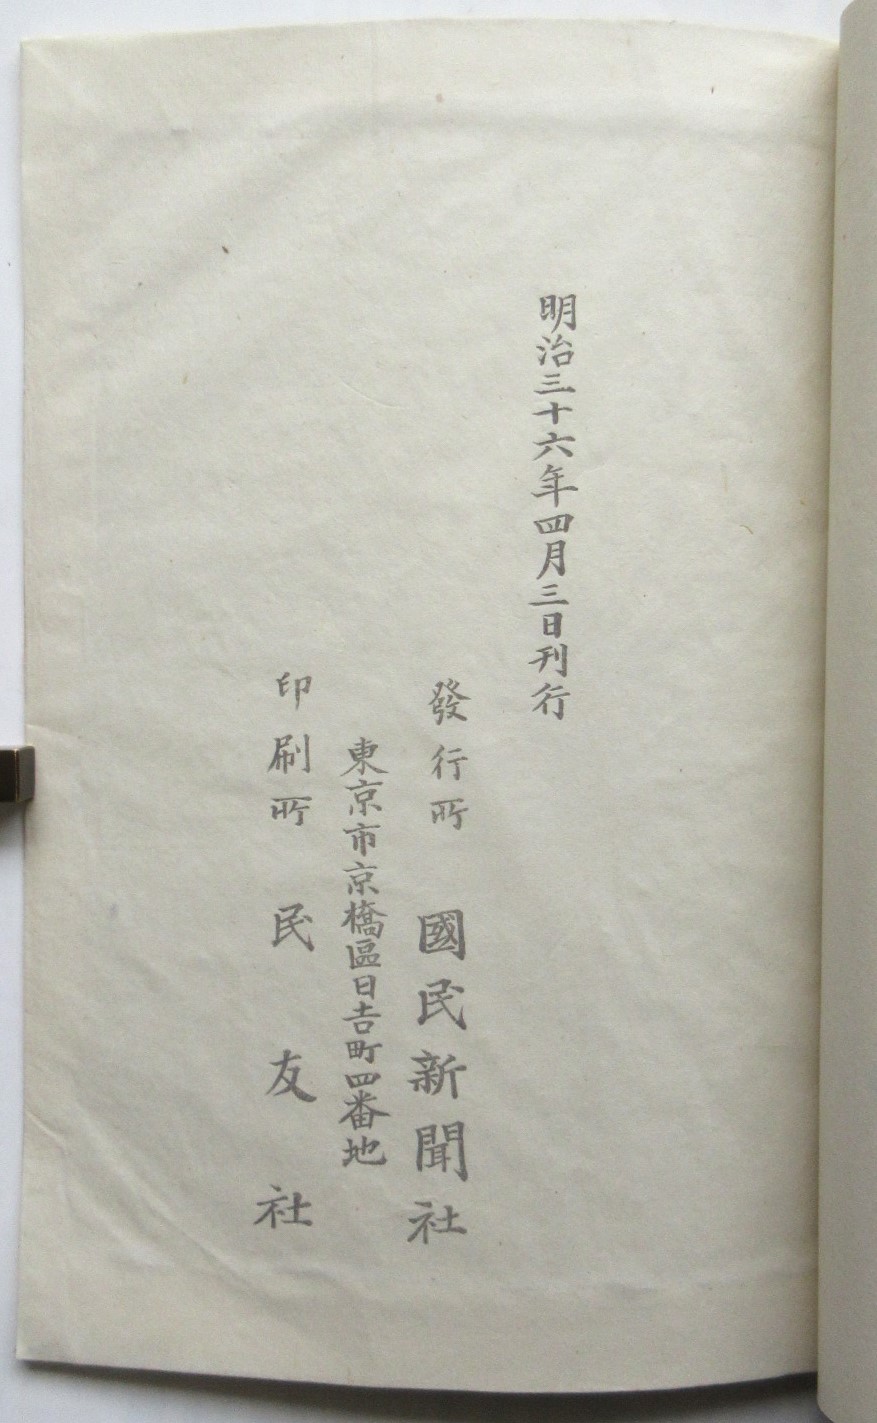 明治三十六年四月三日刊行
發行所 國民新聞社
東京市京橋區日吉町四番地
印刷所 民友社